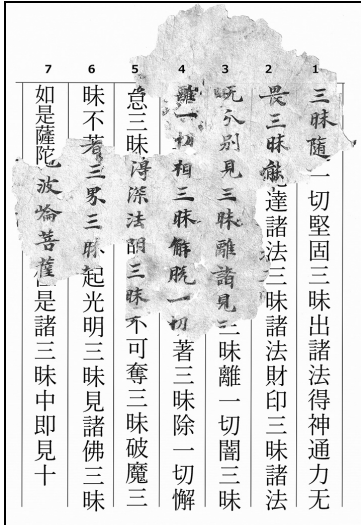 1 三昧隨一切堅固三昧出諸法得神通力无
2 畏三昧能達諸法三昧諸法財印三昧諸法
3 无分別見三昧離諸見三昧離一切闇三昧
4 離一切相三昧解脫一切著三昧除一切懈
5 怠三昧得深法明三昧不可奪三昧破魔三
6 昧不著三界三昧起光明三昧見諸佛三昧
7 如是薩陀波崙菩薩住是諸三昧中即見十